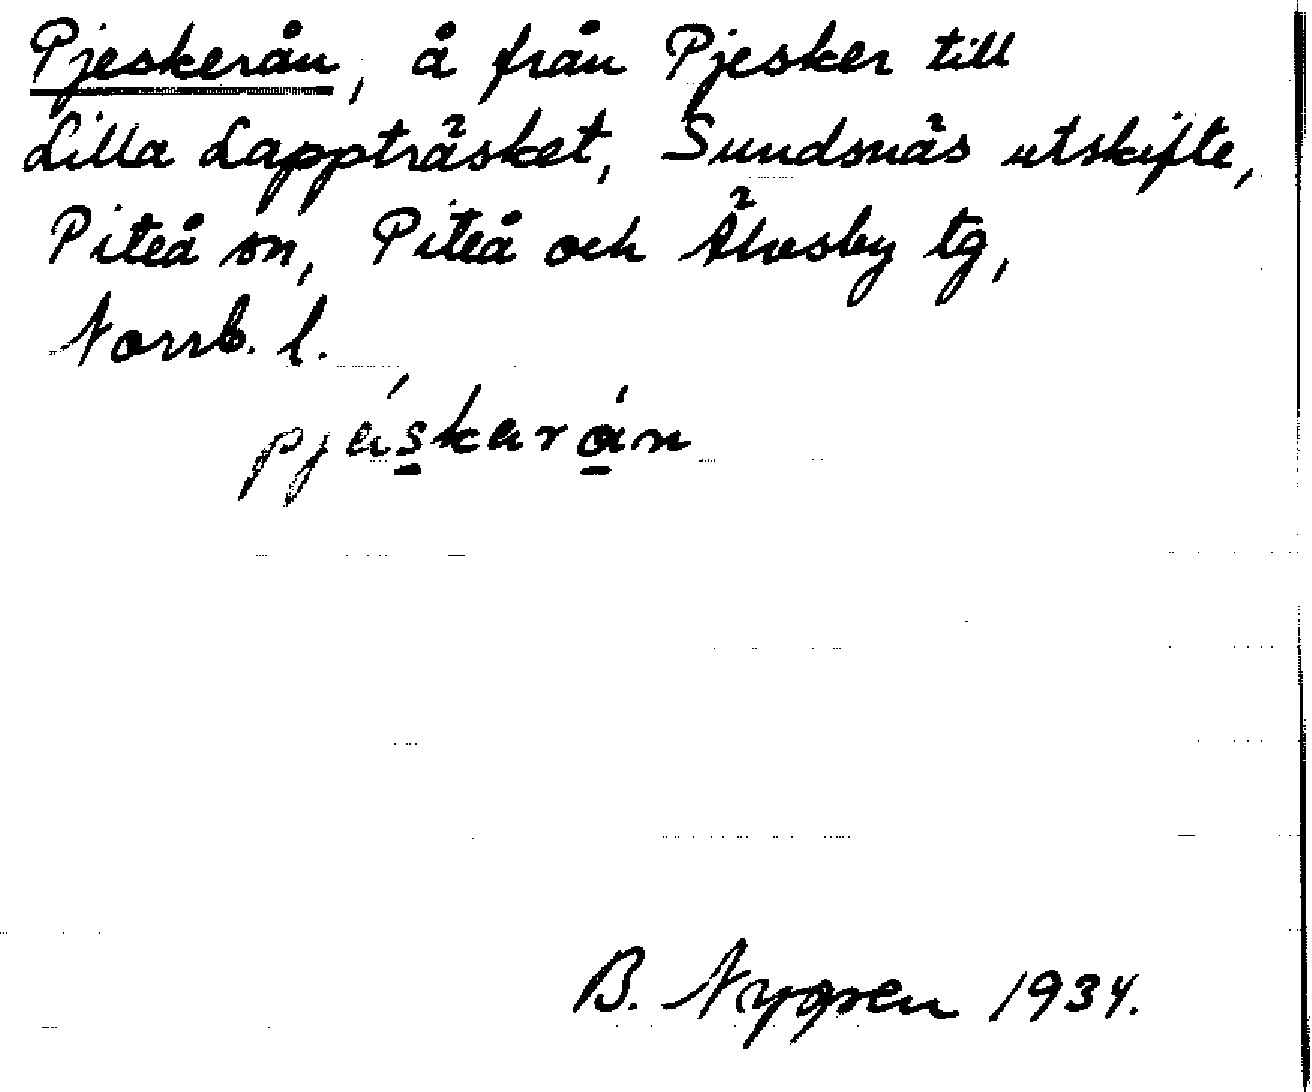 Pjeskerån, å från Pjesker till
Lilla Lappträsket, Sundsnäs utskifte,
Piteå sn, Piteå och Älvsby tg,
Norrb. l.
B. Nygren 1934.